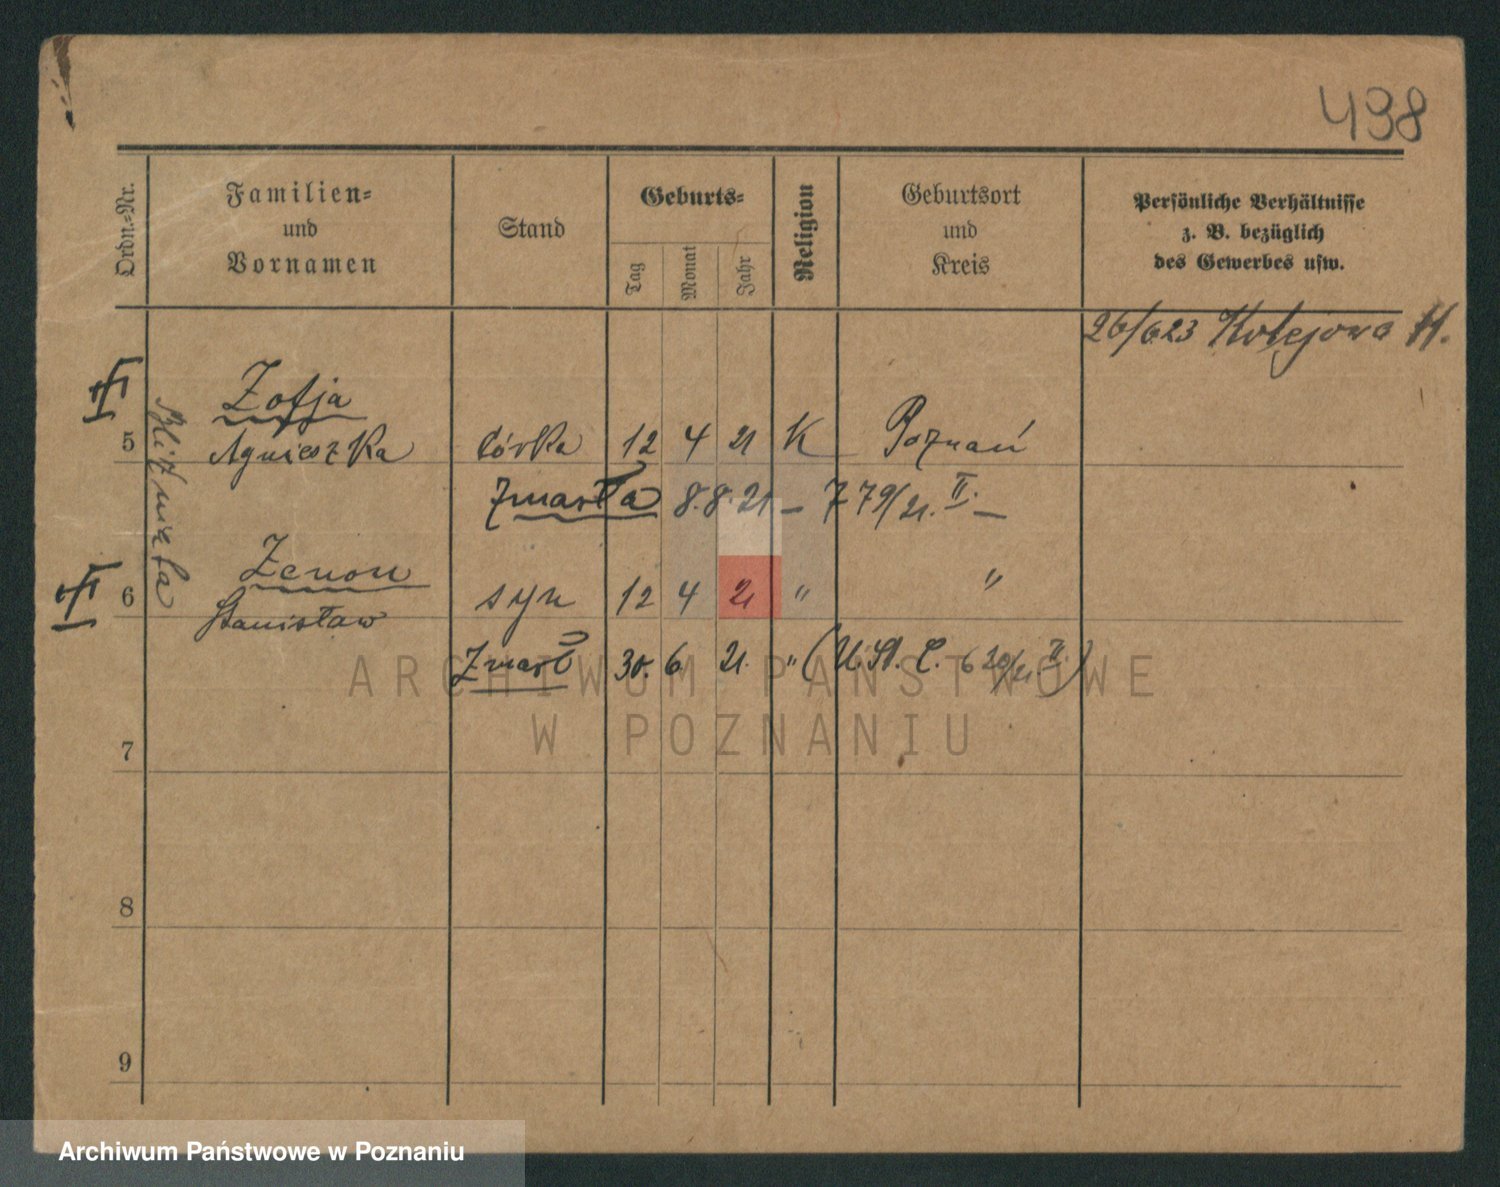 498
Ordn.-Nr.
Familien-
und
Vornamen
Stand
Geburts-
Tag
Monat
Jahr
Religion
Geburtsort
und
Kreis
Persönliche Verhältnisse
z. B. bezüglich
des Gewerbes usw.
26/6 23 Kolejowa
Bliźnięta
Zofja
5 Agnieszka córka 12 4 21 K Poznań
Zmarła 8. 8. 21 – 779/21. II. –
Zenon
6 Stanisław syn 12 4 21 " "
Zmarł 30. 6 21. " (U. St. C. 620/21 II.)
ARCHIWUM PAŃSTWOWE
W POZNANIU
7
8
9
Archiwum Państwowe w Poznaniu